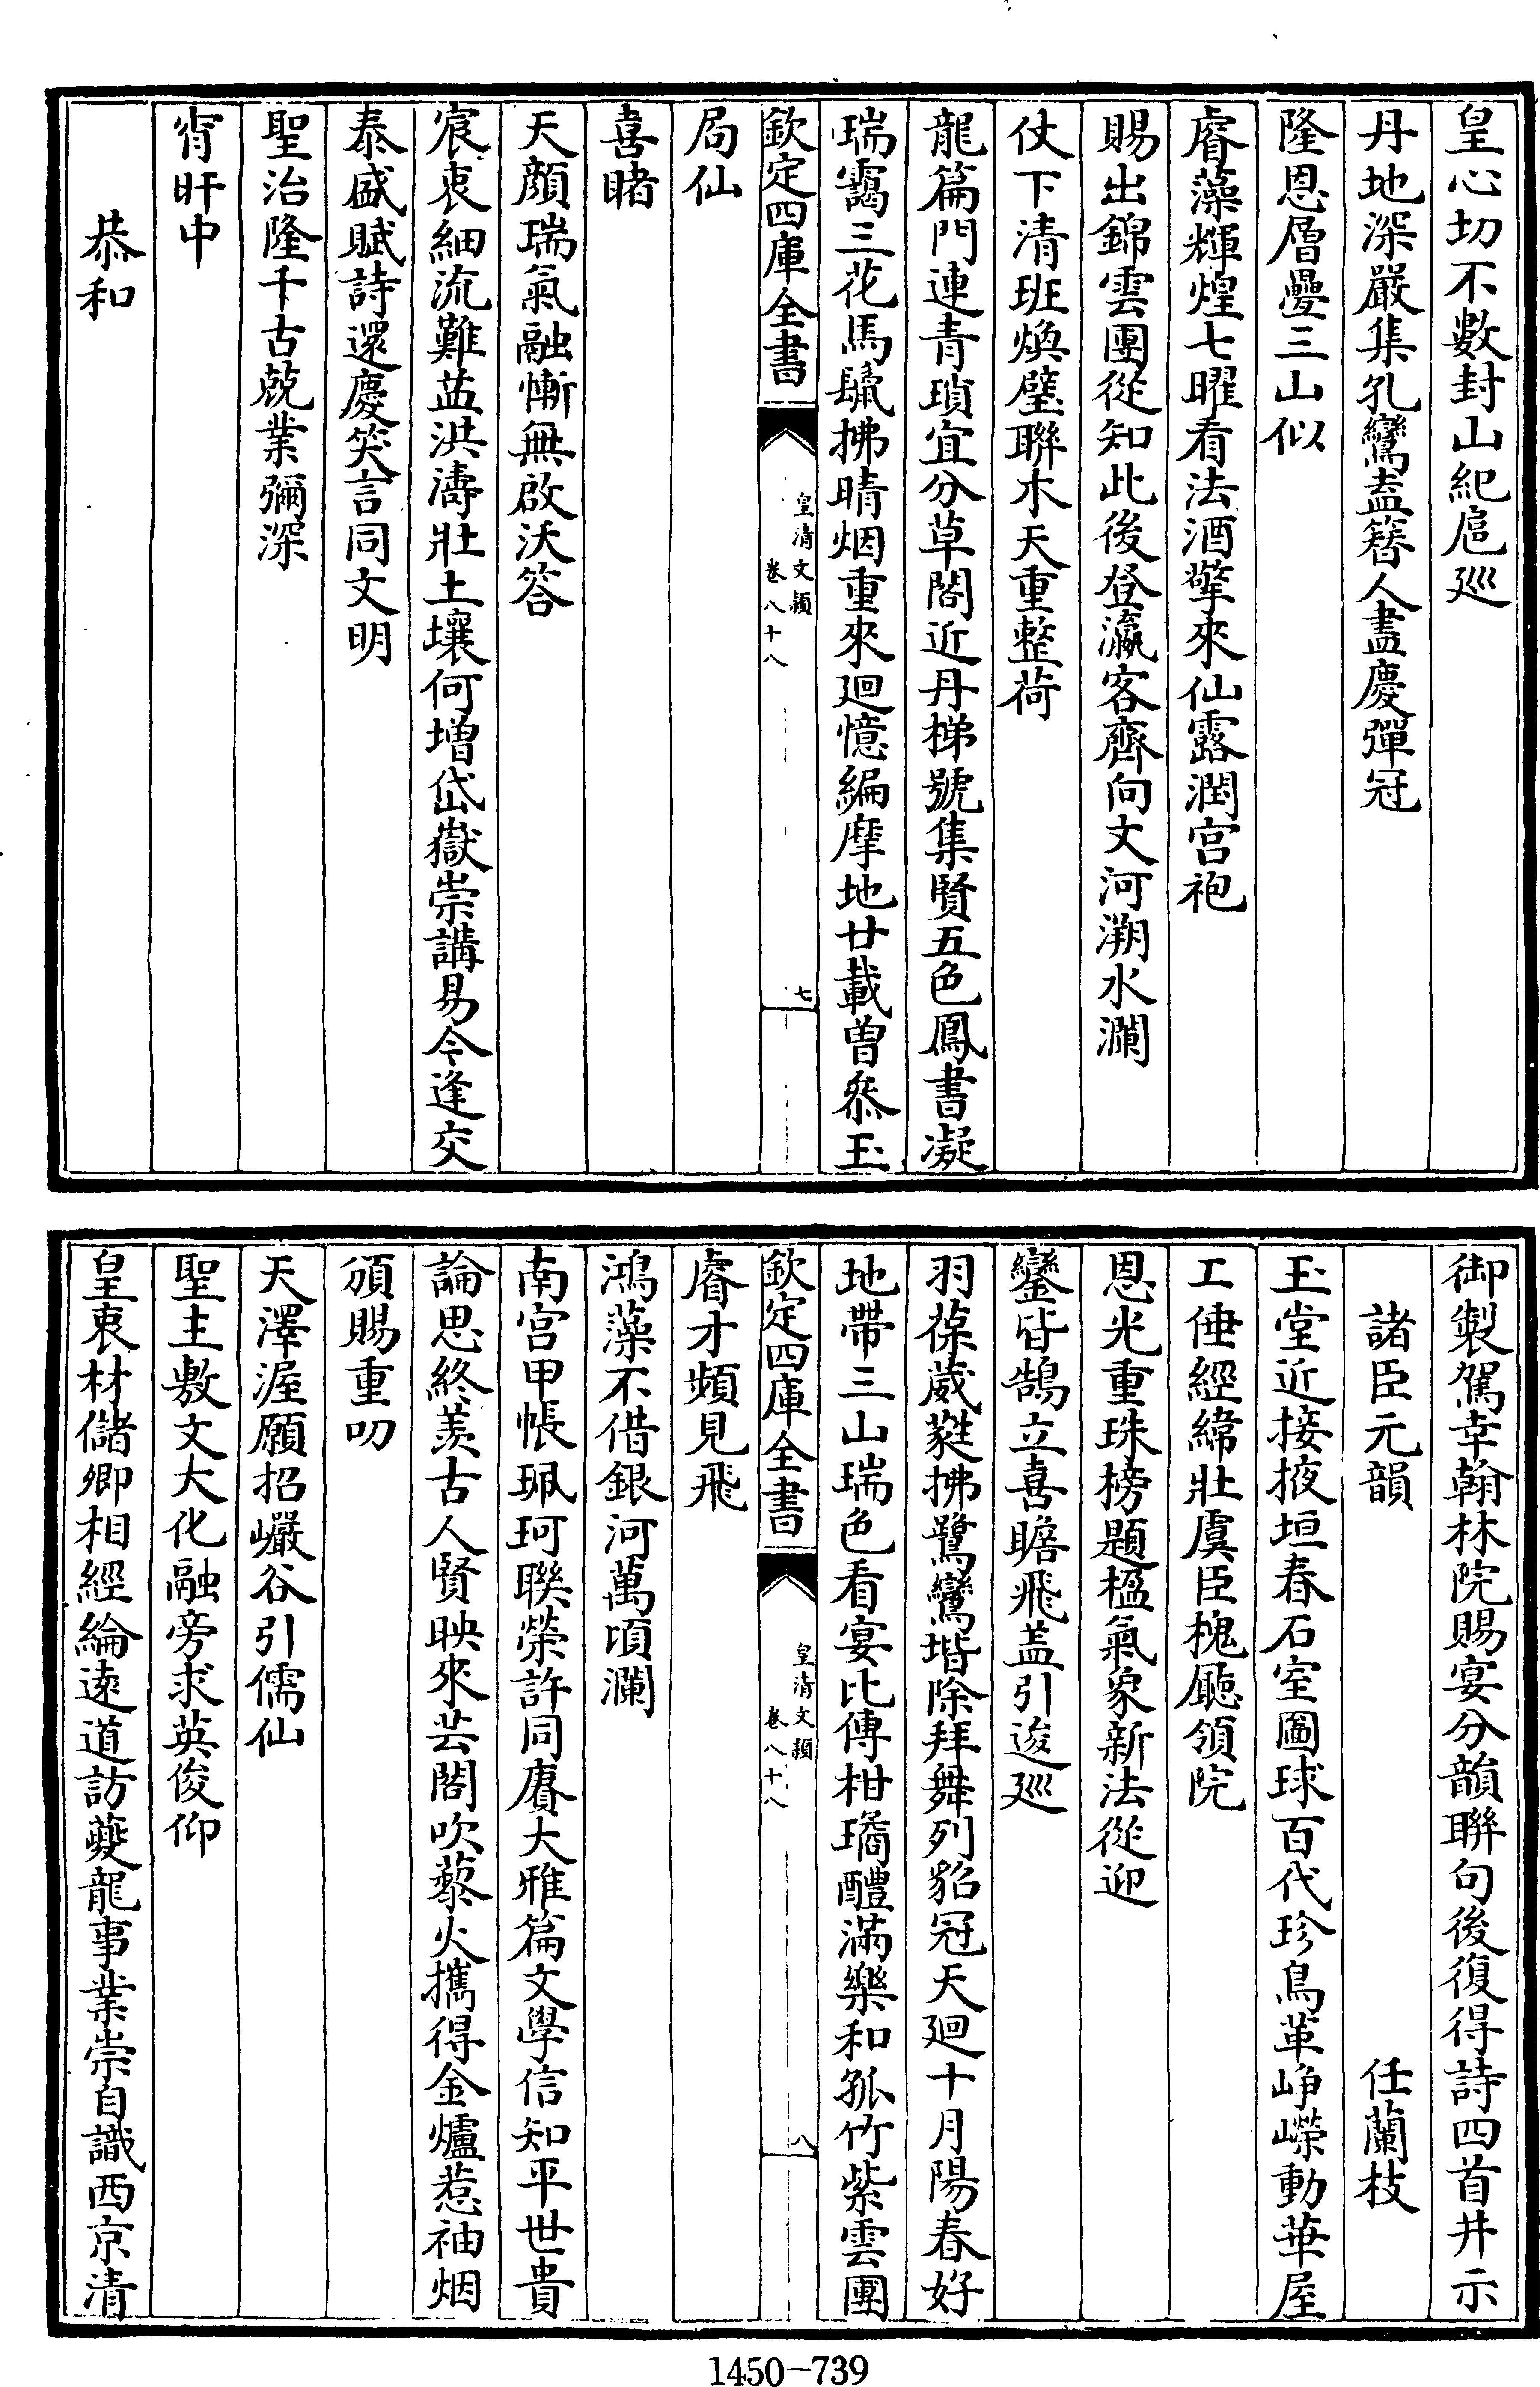 皇心切不數封山紀扈巡
丹地深嚴集孔鸞盍簪人盡慶彈冠
隆恩層疊三山似
睿藻輝煌七曜看法酒擎來仙露潤宫袍
賜出錦雲團從知此後登瀛客齊向文河溯水瀾
仗下清班煥璧聯木天重整荷
龍篇門連青瑣宜分草閣近丹梯號集賢五色鳳書凝
瑞靄三花馬鬛拂晴烟重來廻憶編摩地廿載曽叅玉
欽定四庫全書
皇清文穎
卷八十八
七
局仙
喜睹
天顔瑞氣融慚無啟沃答
宸衷細流難益洪濤壯土壤何增岱嶽崇講易今逢交
泰盛賦詩還慶笑言同文明
聖治隆千古兢業彌深
宵旰中
恭和
御製駕幸翰林院賜宴分韻聯句後復得詩四首井示
諸臣元韻
任蘭枝
玉堂近接掖垣春石室圖球百代珍鳥革崢嶸動華屋
工倕經緯壯虞臣槐廳領院
恩光重珠榜題楹氣象新法從迎
鑾皆鵠立喜瞻飛盖引逡巡
羽葆葳蕤拂鷺鸞堦除拜舞列貂冠天廻十月陽春好
地帶三山瑞色看宴比傳柑璚醴滿樂和孤竹紫雲團
欽定四庫全書
皇清文穎
卷八十八
八
睿才頻見飛
鴻藻不借銀河萬頃瀾
南宫甲帳珮珂聯榮許同賡大雅篇文學信知平世貴
論思終羨古人賢映來芸閣吹藜火攜得金爐惹袖烟
頒賜重叨
天澤渥願招巖谷引儒仙
聖主敷文大化融旁求英俊仰
皇衷材儲卿相經綸遠道訪夔龍事業崇自識西京清
1450-739